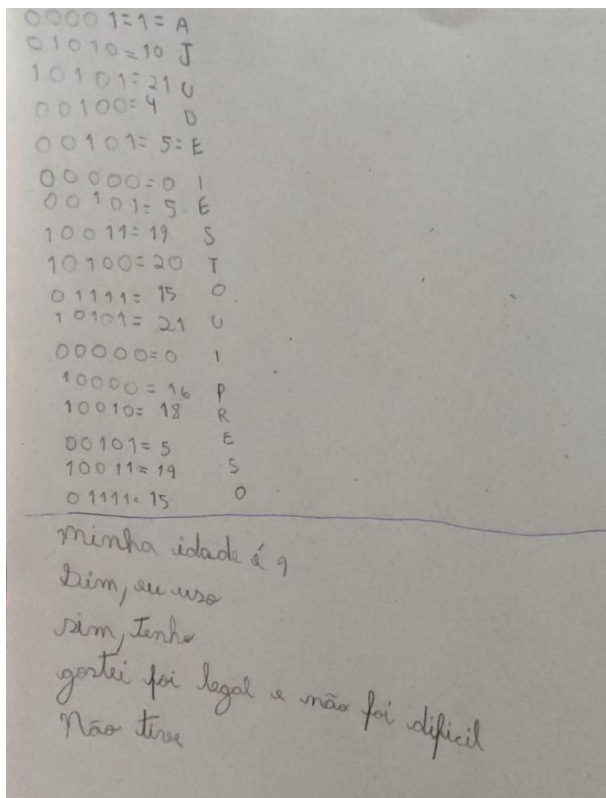 00001=1=A
01010=10 J
10101=21 U
00100=4 D
00101=5=E
00000=0 I
00101=5 E
10011=19 S
10100=20 T
01111=15 O
10101=21 U
00000=0 I
10000=16 P
10010=18 R
00101=5 E
10011=19 S
01111=15 O
Minha idade é 9
Sim, eu uso
sim, tenho
gostei foi legal e não foi dificil
Não tive